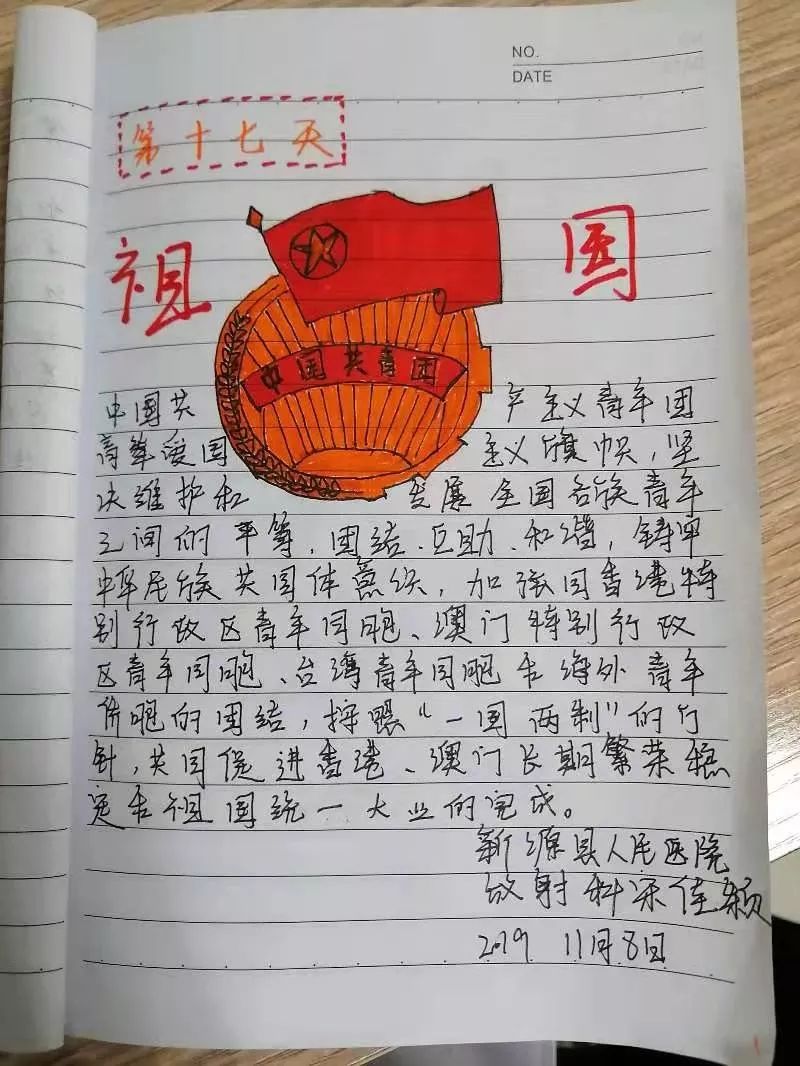 NO.
DATE
第十七天
祖 国
中国共青团
中国共 产主义青年团
高举爱国 主义旗帜,坚
决维护和 发展全国各族青年
之间的平等、团结、互助、和谐,铸牢
中华民族共同体意识,加强同香港特
别行政区青年同胞、澳门特别行政
区青年同胞、台湾青年同胞和海外青年
侨胞的团结,按照“一国两制”的方
针,共同促进香港、澳门长期繁荣稳
定和祖国统一大业的完成。
新源县人民医院
放射科 佳颖
2019 11月8日